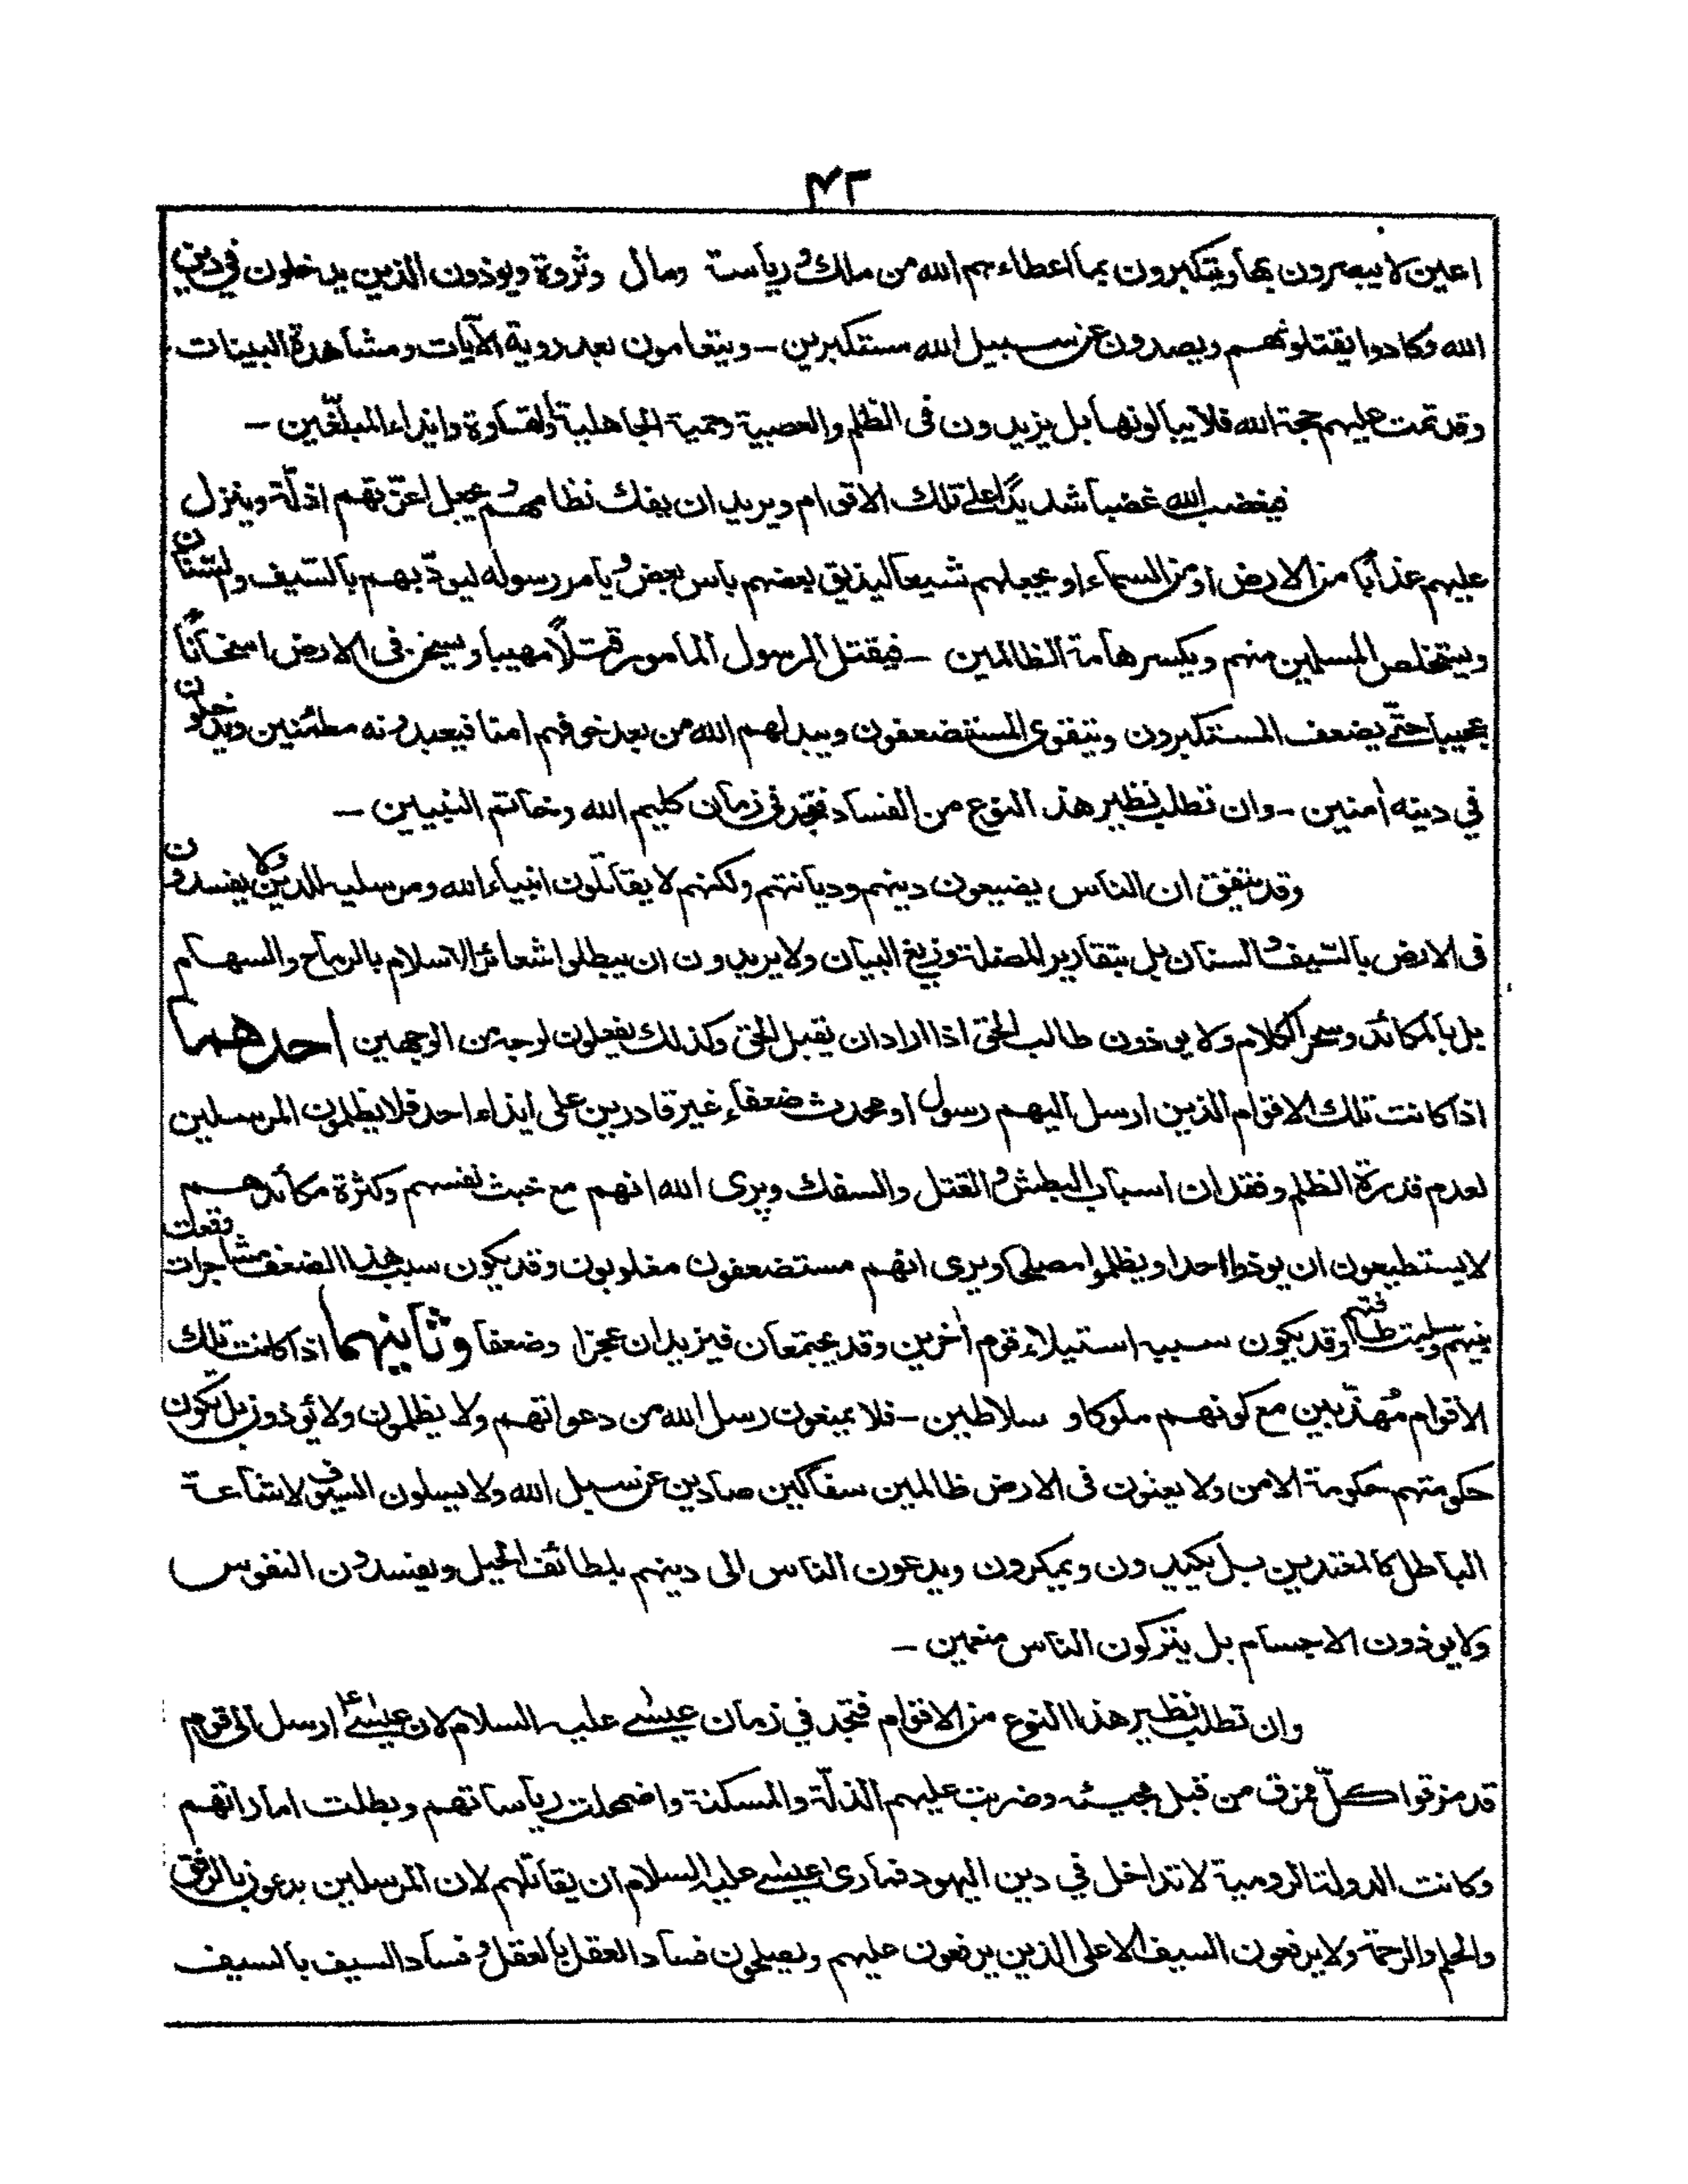 ۴۲
اعين لا يبصرون بها ويتكبرون بما اعطاءهم الله من ملك ورياست ومال وثروة ويوذون الذين يدخلون في دين
الله وكادوا يقتلونهم ويصدرون عن سبيل الله مستكبرين – ويتعامون بعد روية الآيات ومشاهدة البينات
وقد تمت عليهم حجة الله فلا يبالونها بل يزيدون فى الظلم والعصبية وحمية الجاهلية والقساوة وايذاء المبلّغين –
فيغضب الله غضبا شديدًا على تلك الاقوام ويريد ان يفك نظامهم ويجعل اعزّتهم اذلّة وينزل
عليهم عذابًا من الارض او من السماء او يجعلهم شيعا ليذيق بعضهم باس بعض ويامر رسوله ليودّبهم بالسّيف والسّنان
ويستخلص المسلمين منهم ويكسر هامة الظالمين – فيقتل الرسول المامور قتلًا مهيبا ويسخن فى الارض اسخانًا
عجيبا حتّى يضعف المستكبرون ويتقوى المستضعفون ويبدلهم الله من بعد خوفهم امنا فيعبدونه مطئنين ويدخلون
في دينه اٰمنين – وان تطلب نظير هذ النوع من الفساد فتجد في زمان كليم الله وخاتم النبيين –
وقد يتفق ان الناس يضيعون دينهم وديانتهم ولكنهم لا يقاتلون انبياء الله ومرسليه للدين ولا يفسدون
فى الارض بالسّيف والسنان بل بتقارير المضلة وزيغ البيان ولا يريدون ان يبطلوا شعائر الاسلام بالرماح والسهام
بل بالمكائد وسحر الكلام ولا يوذون طالب الحق اذا اراد ان يقبل الحق وكذلك يفعلون لوجه من الوجهين احدهما
اذا كانت تلك الاقوام الذين ارسل اليهم رسول او محدث ضعفاء غير قادرين على ايذاء احد فلا يظلمون المرسلين
لعدم قدرة الظلم وفقدان اسباب البطش والقتل والسفك ويرى الله انهم مع خبث نفسهم وكثرة مكائدهم
لا يستطيعون ان يوذوا احدا ويظلموا مصلحا ويرى انهم مستضعفون مغلوبون وقد يكون سبب هذا الضعف مشاجرات وقعت
بينهم وسلبت طاقتهم وقد يكون سببه استيلاء قوم اٰخرين وقد يجتمعان فيزيدان عجزا وضعفا وثانيهما اذا كانت تلك
الاقوام مُهذّبين مع كونهم ملوكا و سلاطين – فلا يمنعون رسل الله من دعواتهم ولا يظلمون ولا يُوذون بل تكون
حكومتهم حكومة الامن ولا يعثون فى الارض ظالمين سفاكين صادين عن سبيل الله ولا يسلون السيوف لاشاعة
الباطل كالمعتدين بل يكيدون ويمكرون ويدعون الناس الى دينهم بلطائف الحيل ويفسدون النفوس
ولا يوذون الاجسام بل يتركون الناس منعمين –
وان تطلب نظير هذا النوع من الاقوام فتجد في زمان عيسٰى عليه السلام لان عيسٰى ارسل الى قوم
قد مزقوا كلّ ممزق من قبل مجيئه وضربت عليهم الذلّة والمسكنة واضمحلت رياساتهم وبطلت اماراتهم
وكانت الدولة الرومية لا تداخل في دين اليهود فما رى عيسٰى عليه السلام ان يقاتلهم لان المرسلين يدعون بالرفق
والحلم والرحمة ولا يرفعون السيف الا على الذين يرفعون عليهم ويصلحون فساد العقل بالعقل وفساد السيف بالسيف